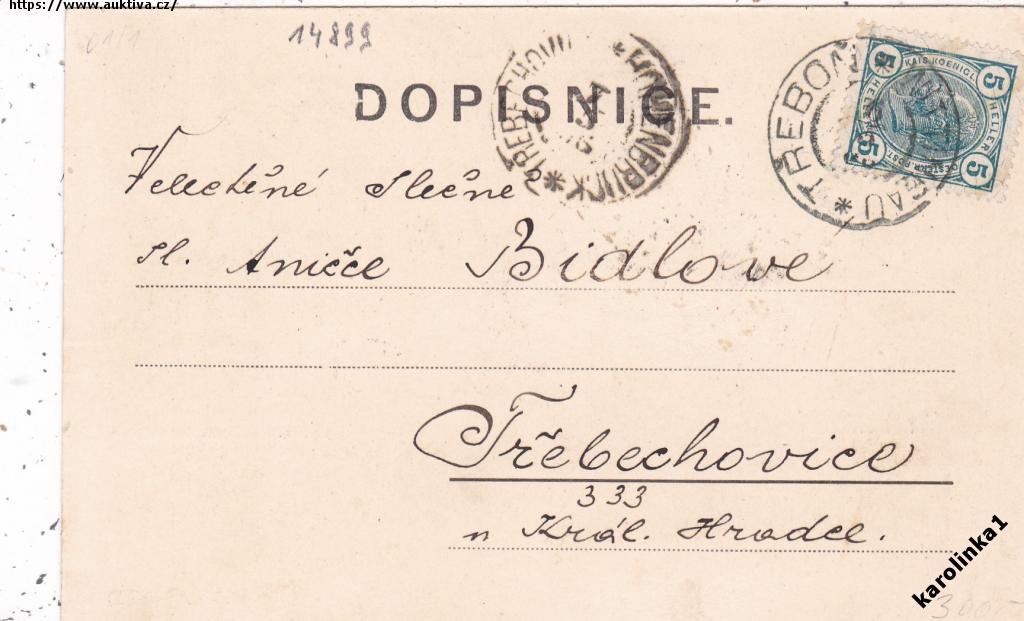 https://www.auktiva.cz/
14899
DOPISNICE.
TŘEBECHOVI
* HOHENBRUCK *
TŘEBOŇ
*
GAU
5 KAIS. KOENIGL. 5
HELLER HELLER
5 OESTERR. POST 5
Velectěné Slečně
Sl. Aničce Bidlove
Třebechovice
333
n Král. Hradce.
karolinka1
300,-